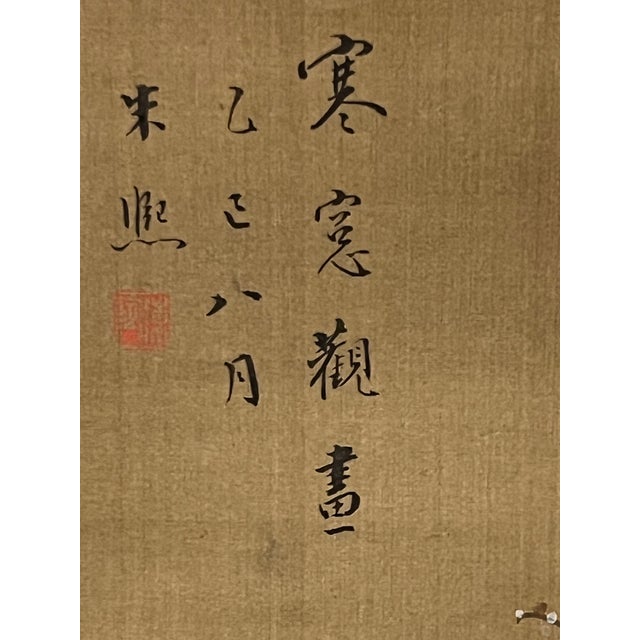 寒窓觀畫
乙巳八月
朱熙